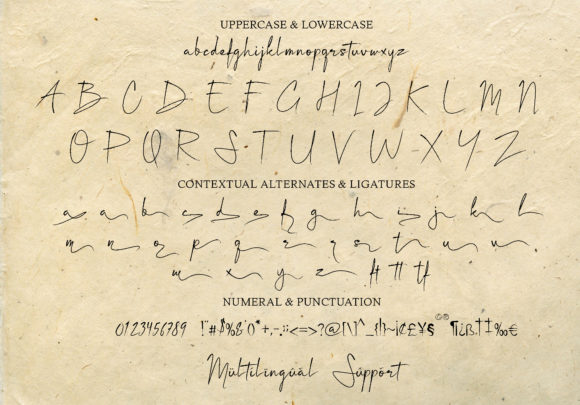 UPPERCASE & LOWERCASE
abcdefghijklmnopqrstuvwxyz
A B C D E F G H I J K L M N
O P Q R S T U V W X Y Z
CONTEXTUAL ALTERNATES & LIGATURES
a a b c d e f g h i j k l
m n o p q r s t u v
w x y z ft tt tf
NUMERAL & PUNCTUATION
0123456789 !"#$%&'()*+,-.:;<=>?@[\]^_{|}~¡¢£¥§©®¶¿ß†‡‰€
Mültilingüàl Süppört